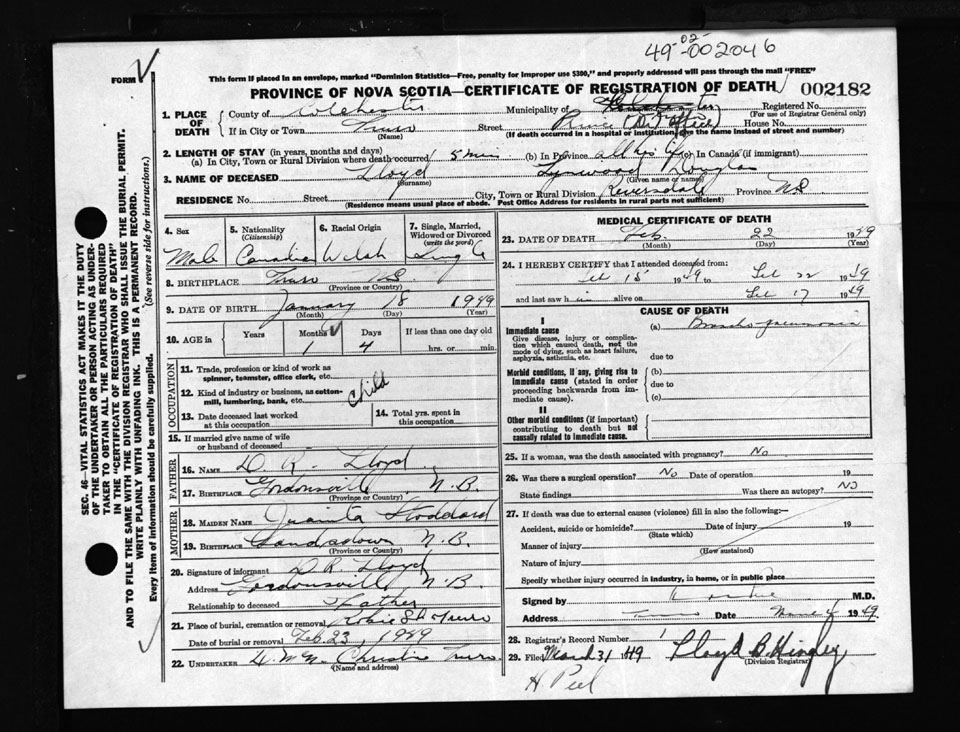 49-02-002046
FORM
This form if placed in an envelope, marked "Dominion Statistics—Free, penalty for improper use $300," and properly addressed will pass through the mail "FREE"
PROVINCE OF NOVA SCOTIA—CERTIFICATE OF REGISTRATION OF DEATH 002182
1. PLACE OF DEATH
County of Colchester Municipality of Colchester Registered No.
(For use of Registrar General only)
If in City or Town Truro Street Prince (Dr. Office) House No.
(Name) (If death occurred in a hospital or institution, give the name instead of street and number)
2. LENGTH OF STAY (in years, months and days)
(a) In City, Town or Rural Division where death occurred 5 min (b) In Province all his life (c) In Canada (if immigrant)
3. NAME OF DECEASED Lloyd Lynwood Douglas
(Surname) (Given name or names)
RESIDENCE No. Street City, Town or Rural Division Riversdale Province N.S.
(Residence means usual place of abode. Post Office Address for residents in rural parts not sufficient)
4. Sex
Male
5. Nationality
(Citizenship)
Canadian
6. Racial Origin
Welsh
7. Single, Married, Widowed or Divorced
(write the word)
Single
8. BIRTHPLACE Truro N.S.
(Province or Country)
9. DATE OF BIRTH January 18 1949
(Month) (Day) (Year)
10. AGE in Years Months Days If less than one day old
1 4 hrs. or min.
OCCUPATION
11. Trade, profession or kind of work as spinner, teamster, office clerk, etc.
12. Kind of industry or business, as cotton-mill, lumbering, bank, etc.
child
13. Date deceased last worked at this occupation
14. Total yrs. spent in this occupation
15. If married give name of wife or husband of deceased
FATHER
16. NAME D. R. Lloyd
17. BIRTHPLACE Gordonsville N.B.
(Province or Country)
MOTHER
18. MAIDEN NAME Juanita Stoddard
19. BIRTHPLACE N.B.
(Province or Country)
20. Signature of informant D. R. Lloyd
Address Gordonsville N.B.
Relationship to deceased Father
21. Place of burial, cremation or removal Robie St Truro
Date of burial or removal Feb. 23, 1949
22. UNDERTAKER Christie Truro
(Name and address)
MEDICAL CERTIFICATE OF DEATH
23. DATE OF DEATH Feb. 22 1949
(Month) (Day) (Year)
24. I HEREBY CERTIFY that I attended deceased from:
Feb 15 1949 to Feb 22 1949
and last saw him alive on Feb 17 1949
CAUSE OF DEATH
I
Immediate cause
Give disease, injury or complication which caused death, not the mode of dying, such as heart failure, asphyxia, asthenia, etc.
(a) Broncho-pneumonia
due to
Morbid conditions, if any, giving rise to immediate cause (stated in order proceeding backwards from immediate cause).
(b)
due to
(c)
II
Other morbid conditions (if important) contributing to death but not causally related to immediate cause.
25. If a woman, was the death associated with pregnancy? No
26. Was there a surgical operation? No Date of operation 19
State findings Was there an autopsy? NO
27. If death was due to external causes (violence) fill in also the following:—
Accident, suicide or homicide? Date of injury 19
(State which)
Manner of injury
(How sustained)
Nature of injury
Specify whether injury occurred in industry, in home, or in public place
Signed by M.D.
Address Truro Date March 4 1949
28. Registrar's Record Number 1
29. Filed March 31 1949 Lloyd B. Kingley
(Division Registrar)
H Peel
SEC. 46—VITAL STATISTICS ACT MAKES IT THE DUTY
OF THE UNDERTAKER OR PERSON ACTING AS UNDER-
TAKER TO OBTAIN ALL THE PARTICULARS REQUIRED
IN THE "CERTIFICATE OF REGISTRATION OF DEATH"
AND TO FILE THE SAME WITH THE DIVISION REGISTRAR WHO SHALL ISSUE THE BURIAL PERMIT.
WRITE PLAINLY WITH UNFADING INK. THIS IS A PERMANENT RECORD.
Every item of information should be carefully supplied. (See reverse side for instructions.)